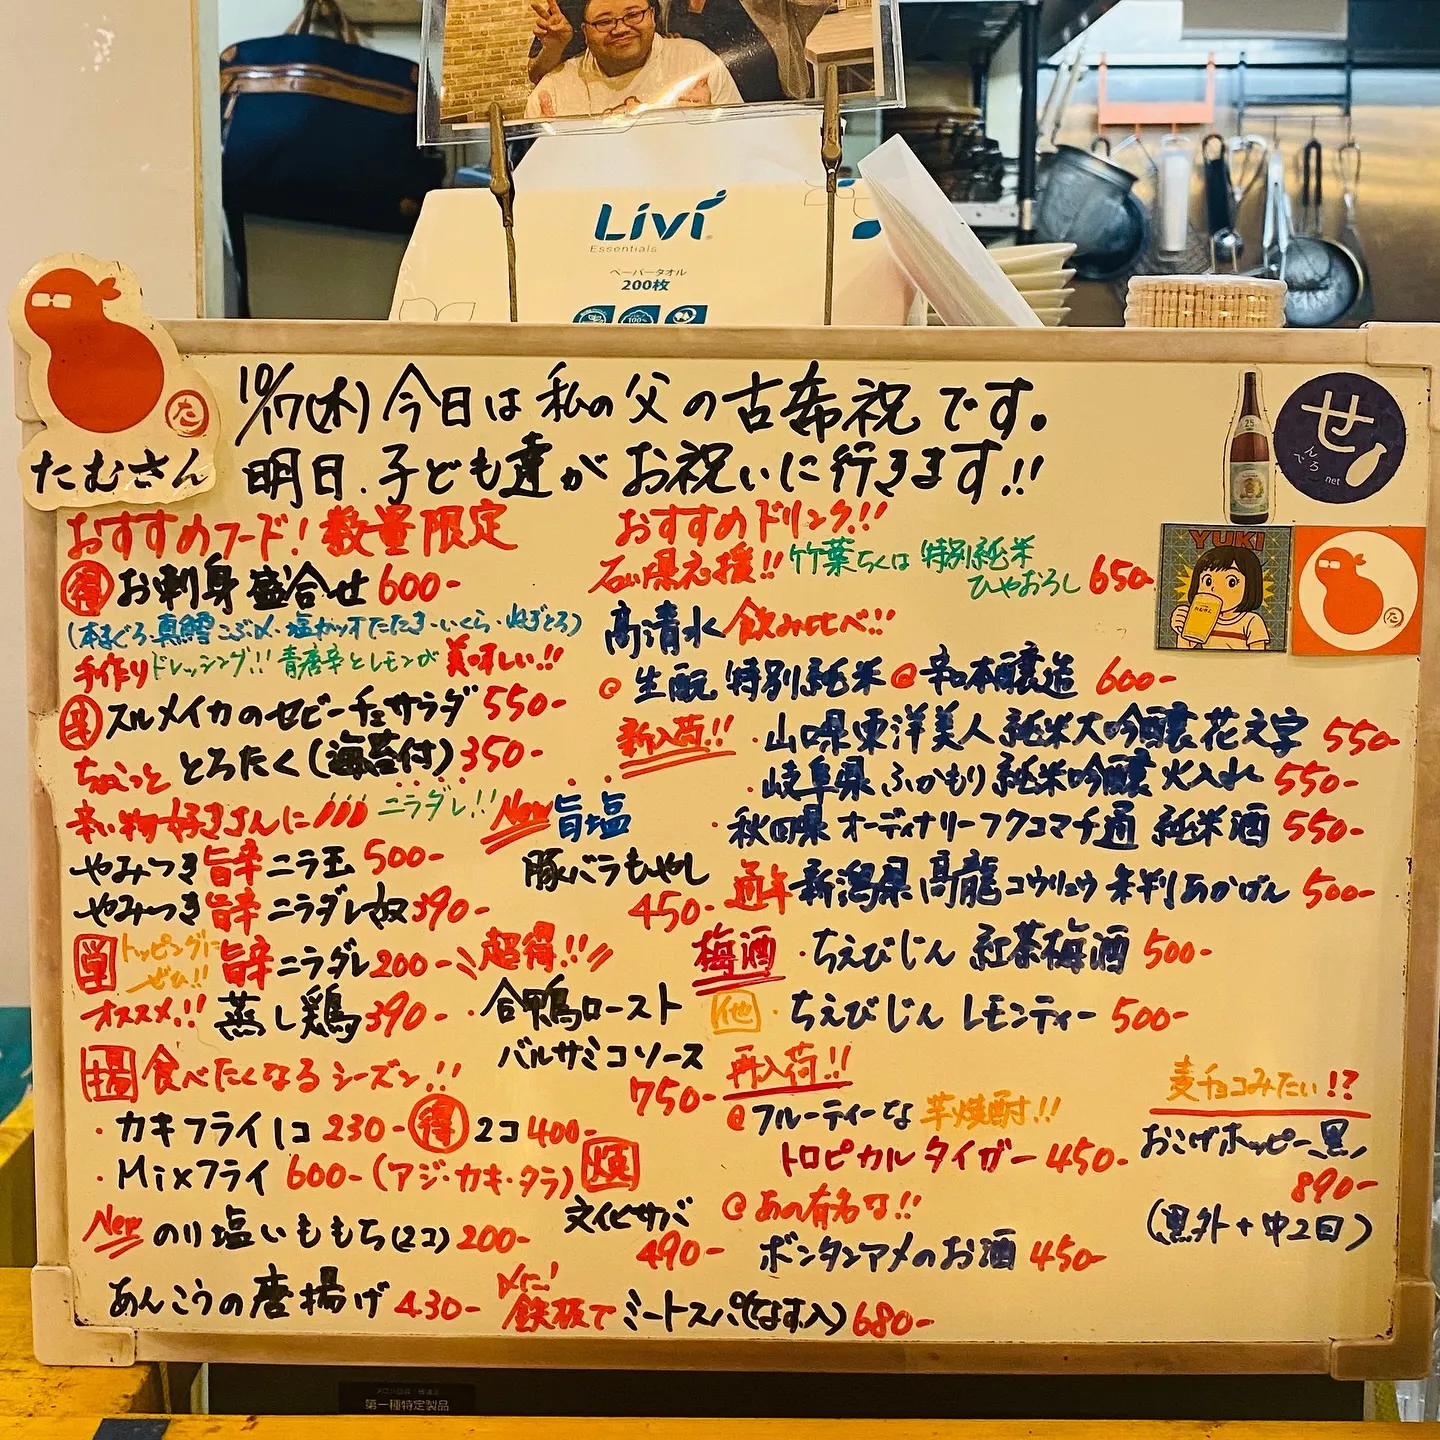 Livi
Essentials
ペーパータオル
200枚
100%
たむさん
た
10/17(木) 今日は私の父の古希祝です。
明日、子ども達がお祝いに行きます!!
せ
でんろ
net
YUKI
た
おすすめフード! 数量限定
得 お刺身盛合せ 600-
(本まぐろ・真鱈こぶ〆・塩カツオたたき・いくら・ねぎとろ)
手作りドレッシング!! 青唐辛とレモンが美味しい!!
スルメイカのセビーチェサラダ 550-
とろたく(海苔付) 350-
ちょこっと
辛い物好きさんに ニラダレ!!
やみつき旨辛ニラ玉 500-
やみつき旨辛ニラダレ奴 390-
単 トッピングに ぜひ!! 旨辛ニラダレ 200- 超得!!
オススメ!! 蒸し鶏 390-
New 旨塩
豚バラもやし
450-
・合鴨ロースト
バルサミコソース
750-
揚 食べたくなるシーズン!!
・カキフライ1コ 230- 得 2コ 400-
・Mixフライ 600- (アジ・カキ・タラ)
New のり塩いももち(2コ) 200-
あんこうの唐揚げ 430-
文化サバ
490-
〆に! 鉄板でミートスパ(なす入) 680-
おすすめドリンク!!
石川県応援!! 竹葉ちくは 特別純米
ひやおろし 650-
高清水 飲み比べ!!
@ 生酛 特別純米 @ 辛口本醸造 600-
新入荷!! ・山口県東洋美人 純米大吟醸花文字 550-
・岐阜県 ふかもり 純米吟醸 火入れ 550-
・秋田県 オーディナリーフクコマチ通 純米酒 550-
通年 新潟県 高龍 コウリュウ 辛判 あかばん 500-
梅酒 ・ちえびじん 紅茶梅酒 500-
他 ・ちえびじん レモンティー 500-
再入荷!!
@フルーティーな芋焼酎!!
トロピカルタイガー 450-
@あの有名な!!
ボンタンアメのお酒 450-
麦チョコみたい!?
おこげホッピー黒
890-
(黒外+中2回)
第一種特定製品